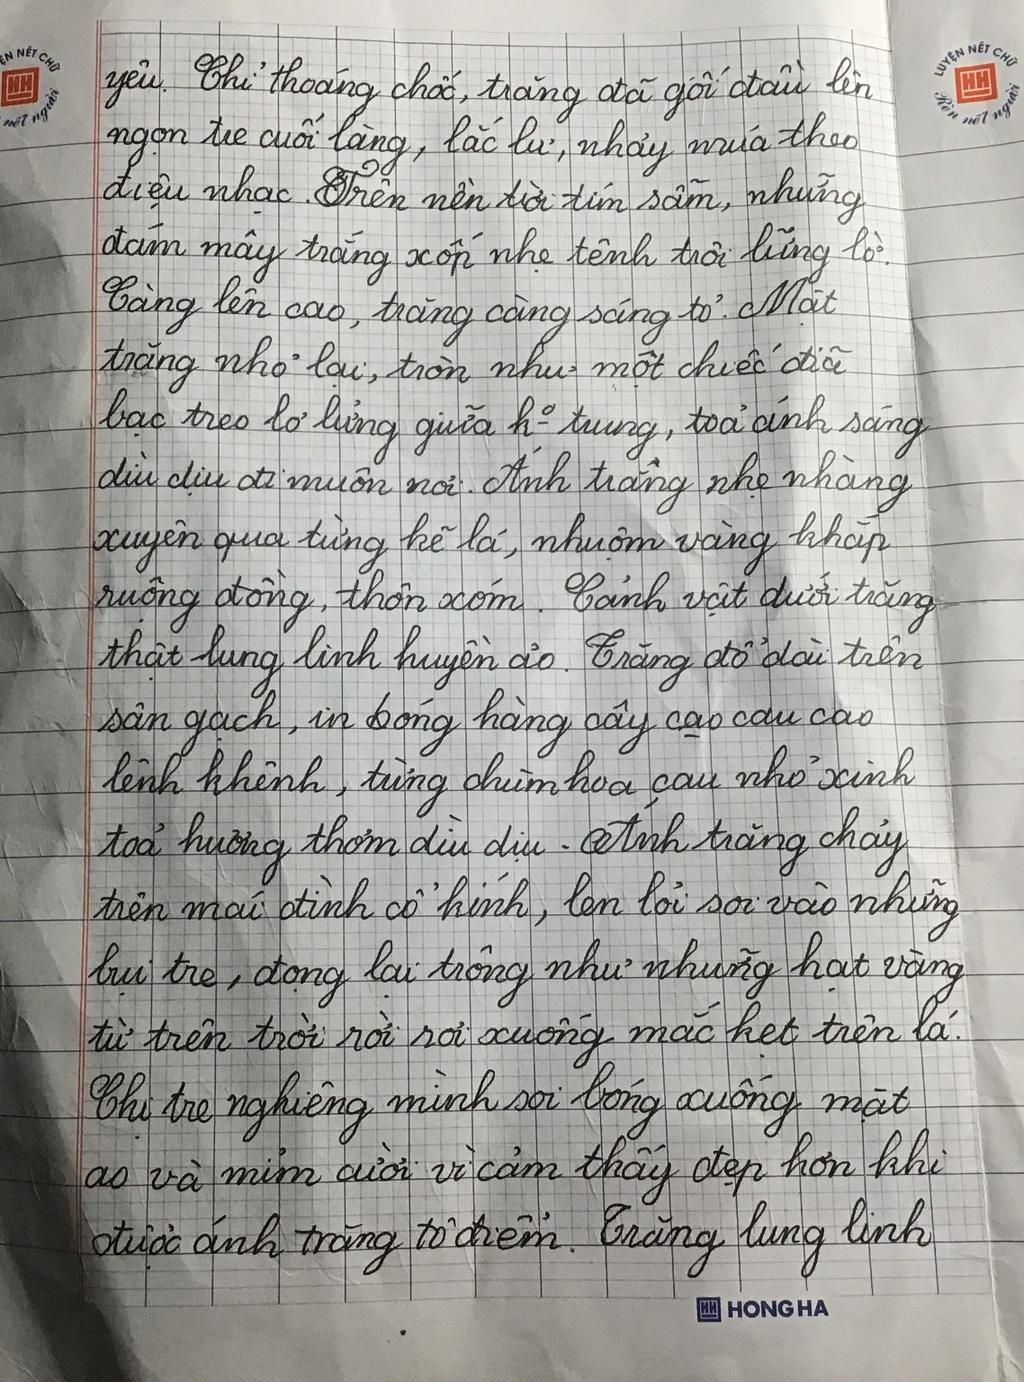 LUYỆN NÉT CHỮ
Rèn nết người
yêu. Chỉ thoáng chốc, trăng đã gối đầu lên
ngọn tre cuối làng, lắc lư, nhảy múa theo
điệu nhạc. Trên nền trời tím sẫm, những
đám mây trắng xốp nhẹ tênh trôi lững lờ.
Càng lên cao, trăng càng sáng tỏ. Mặt
trăng nhỏ lại, tròn như một chiếc đĩa
bạc treo lơ lửng giữa ko trung, toả ánh sáng
dìu dịu đi muôn nơi. Ánh trăng nhẹ nhàng
xuyên qua từng kẽ lá, nhuộm vàng khắp
ruộng đồng, thôn xóm. Cảnh vật dưới trăng
thật lung linh huyền ảo. Trăng đổ dài trên
sân gạch, in bóng hàng cây cạo cau cao
lênh khênh, từng chùm hoa cau nhỏ xinh
toả hương thơm dìu dịu. Ánh trăng chảy
trên mái đình cổ kính, len lỏi soi vào những
bụi tre, đọng lại trông như những hạt vàng
từ trên trời rời rơi xuống mắc kẹt trên lá.
Chị tre nghiêng mình soi bóng xuống mặt
ao và mỉm cười vì cảm thấy đẹp hơn khi
được ánh trăng tô điểm. Trăng lung linh
HONG HA